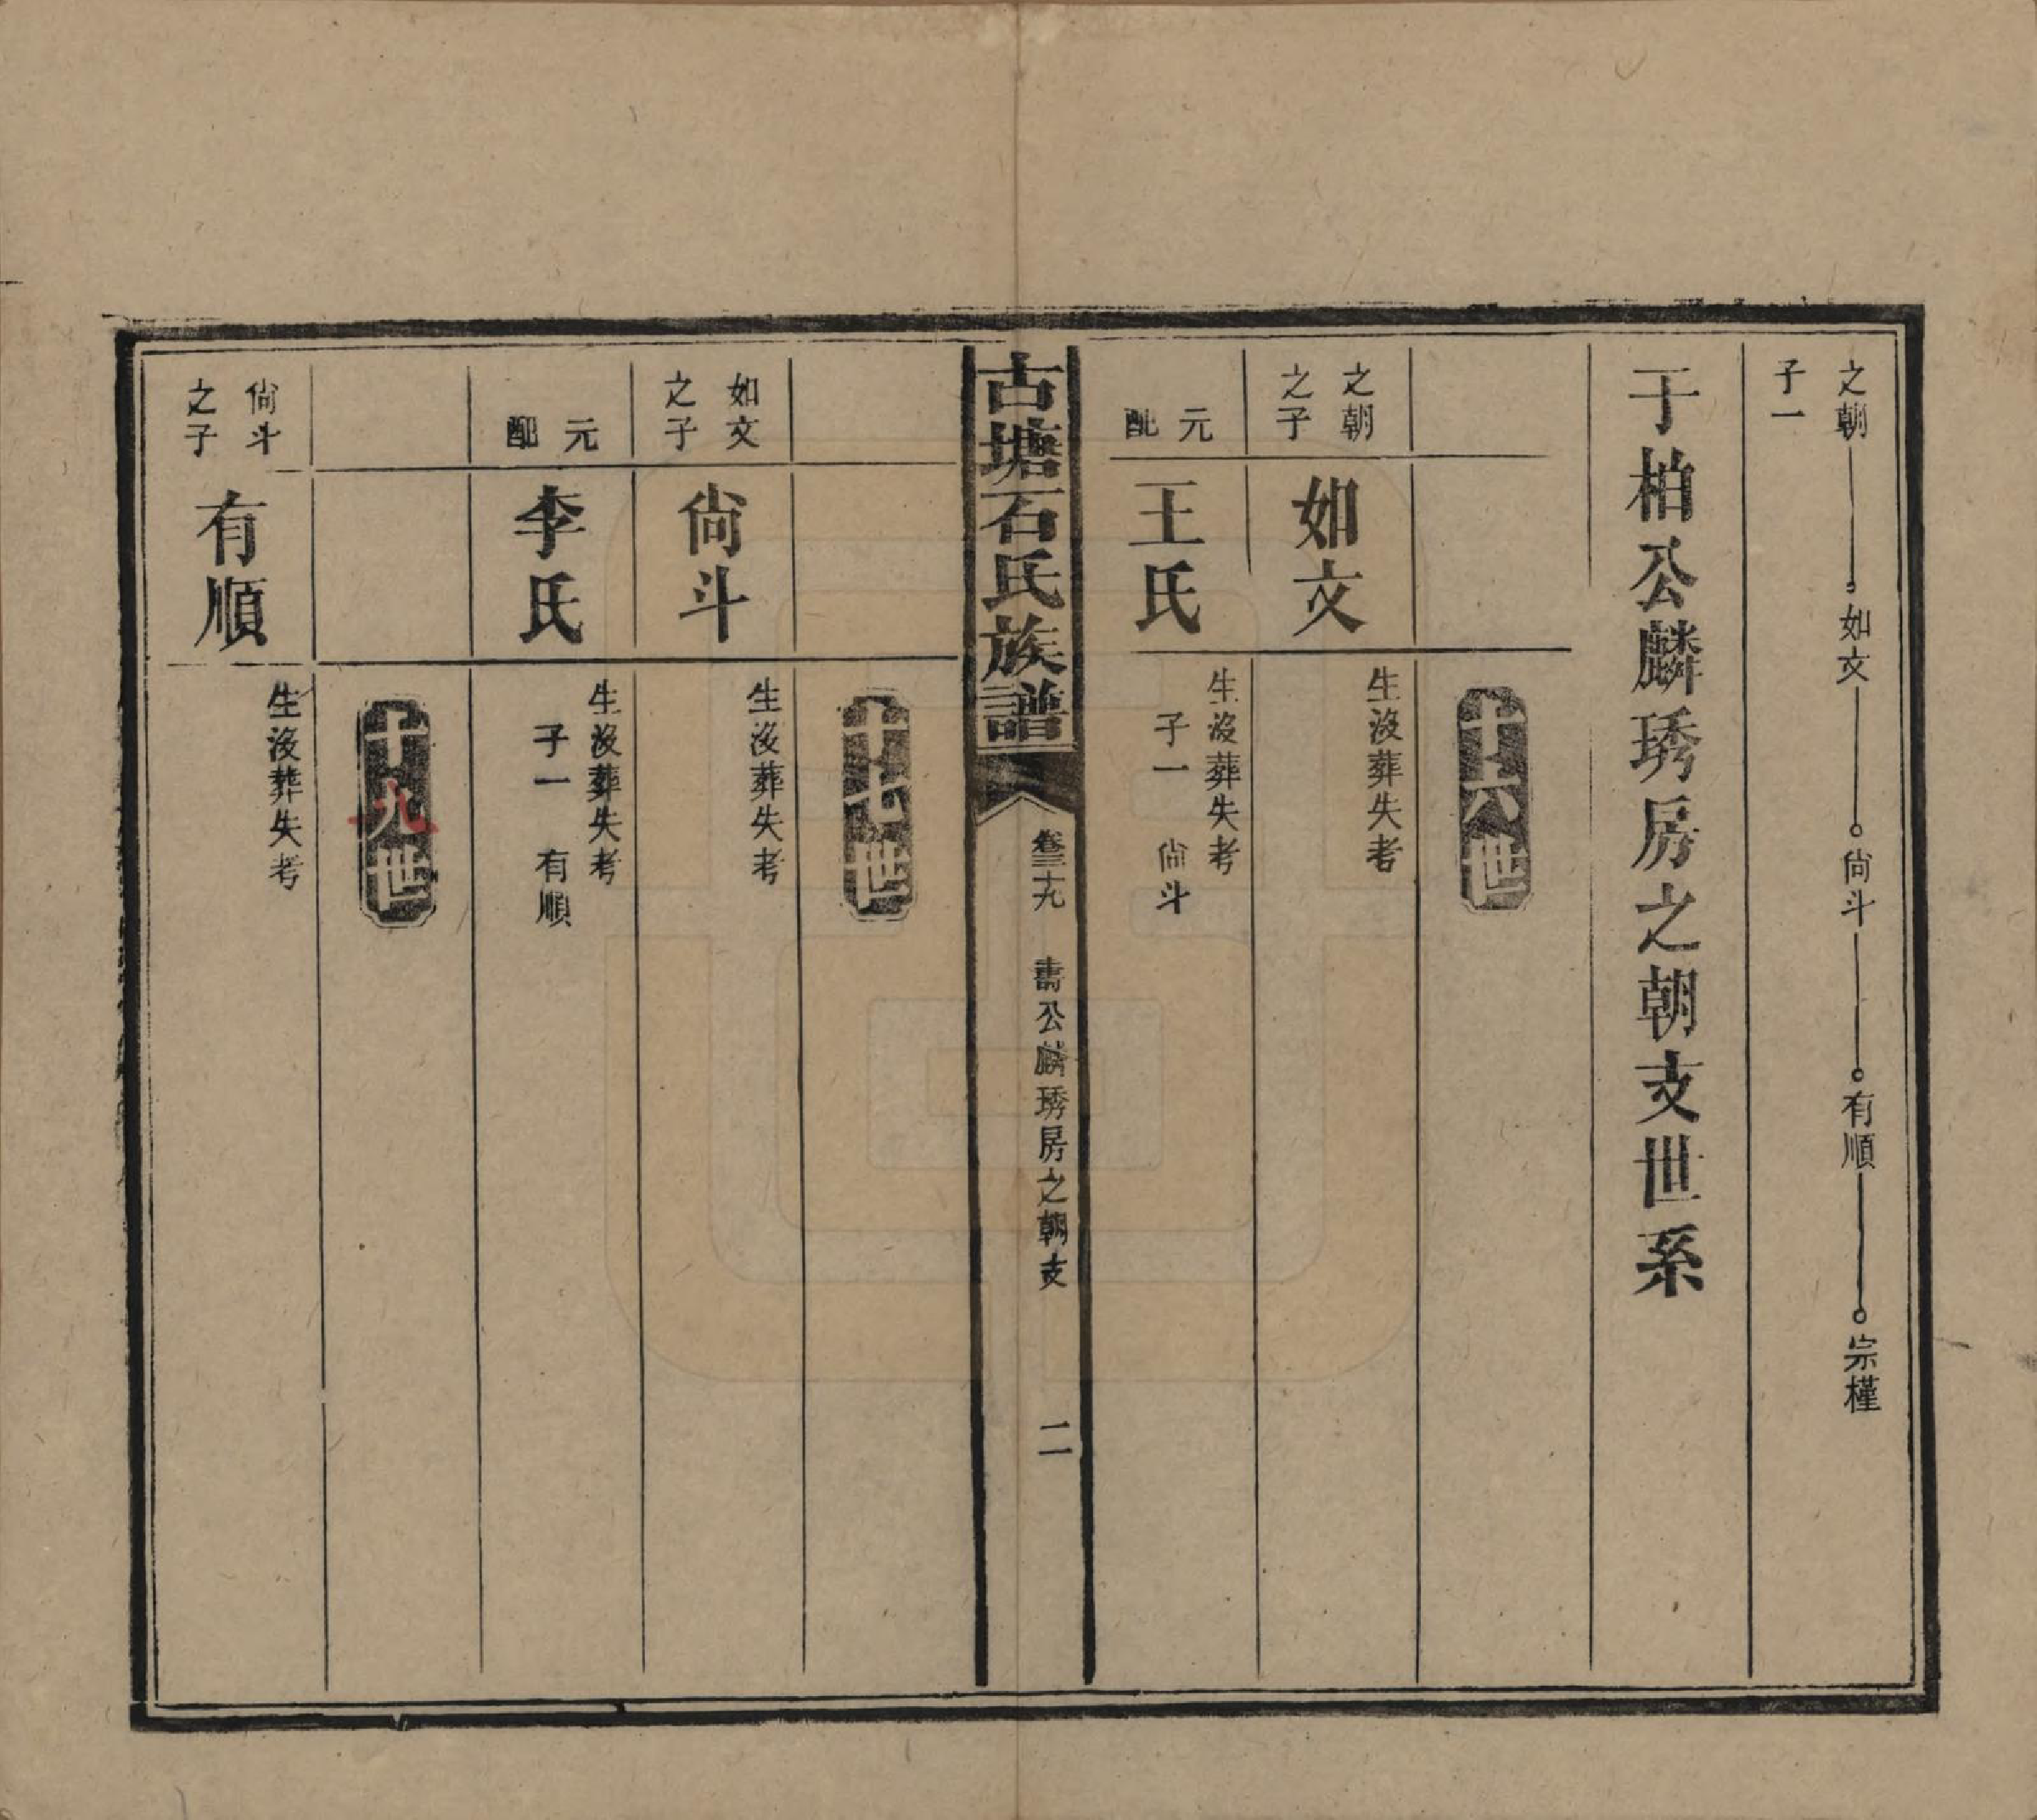 之朝 如文 尙斗 有順 宗槿
子一
于柏公麟琇房之朝支世系
十六世
之朝之子
如文
生没葬失考
元配
王氏
生没葬失考
子一 尙斗
古塘石氏族譜
卷三十九 壽公麟琇房之朝支 二
十七世
如文之子
尙斗
生没葬失考
元配
李氏
生没葬失考
子一 有順
十八世
尙斗之子
有順
生没葬失考